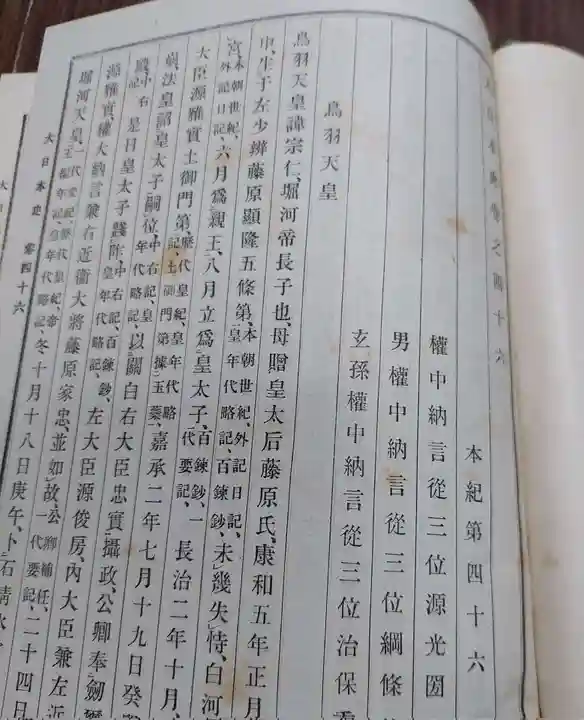 本紀第四十六
權中納言從三位源光圀
男權中納言從三位綱條
玄孫權中納言從三位治保
鳥羽天皇
鳥羽天皇諱宗仁、堀河帝長子也、母贈皇太后藤原氏、康和五年正月
申、生于左少辨藤原顯隆五條第、本朝世紀、外記日記、皇年代略記、百鍊鈔、未幾失恃、白河
宮、本朝世紀、外記日記、六月爲親王、八月立爲皇太子、百鍊鈔、一代要記、長治二年十月、
大臣源雅實土御門第、歷代皇紀、皇年代略記、土御門第據玉葉、嘉承二年七月十九日癸
崩、法皇詔皇太子嗣位、中右記、皇年代略記、以關白右大臣忠實攝政、公卿奉劒
殿、中右記、是日皇太子踐阼、中右記、百鍊鈔、皇年代略記、左大臣源俊房、內大臣兼左近
源雅實、權大納言兼右近衞大將藤原家忠、並如故、公卿補任、一代要記、二十四日
堀河天皇、一代要記、歷代皇紀、帝王編年記、皇年代略記、冬十月十八日庚午、卜石淸水
大日本史 卷四十六